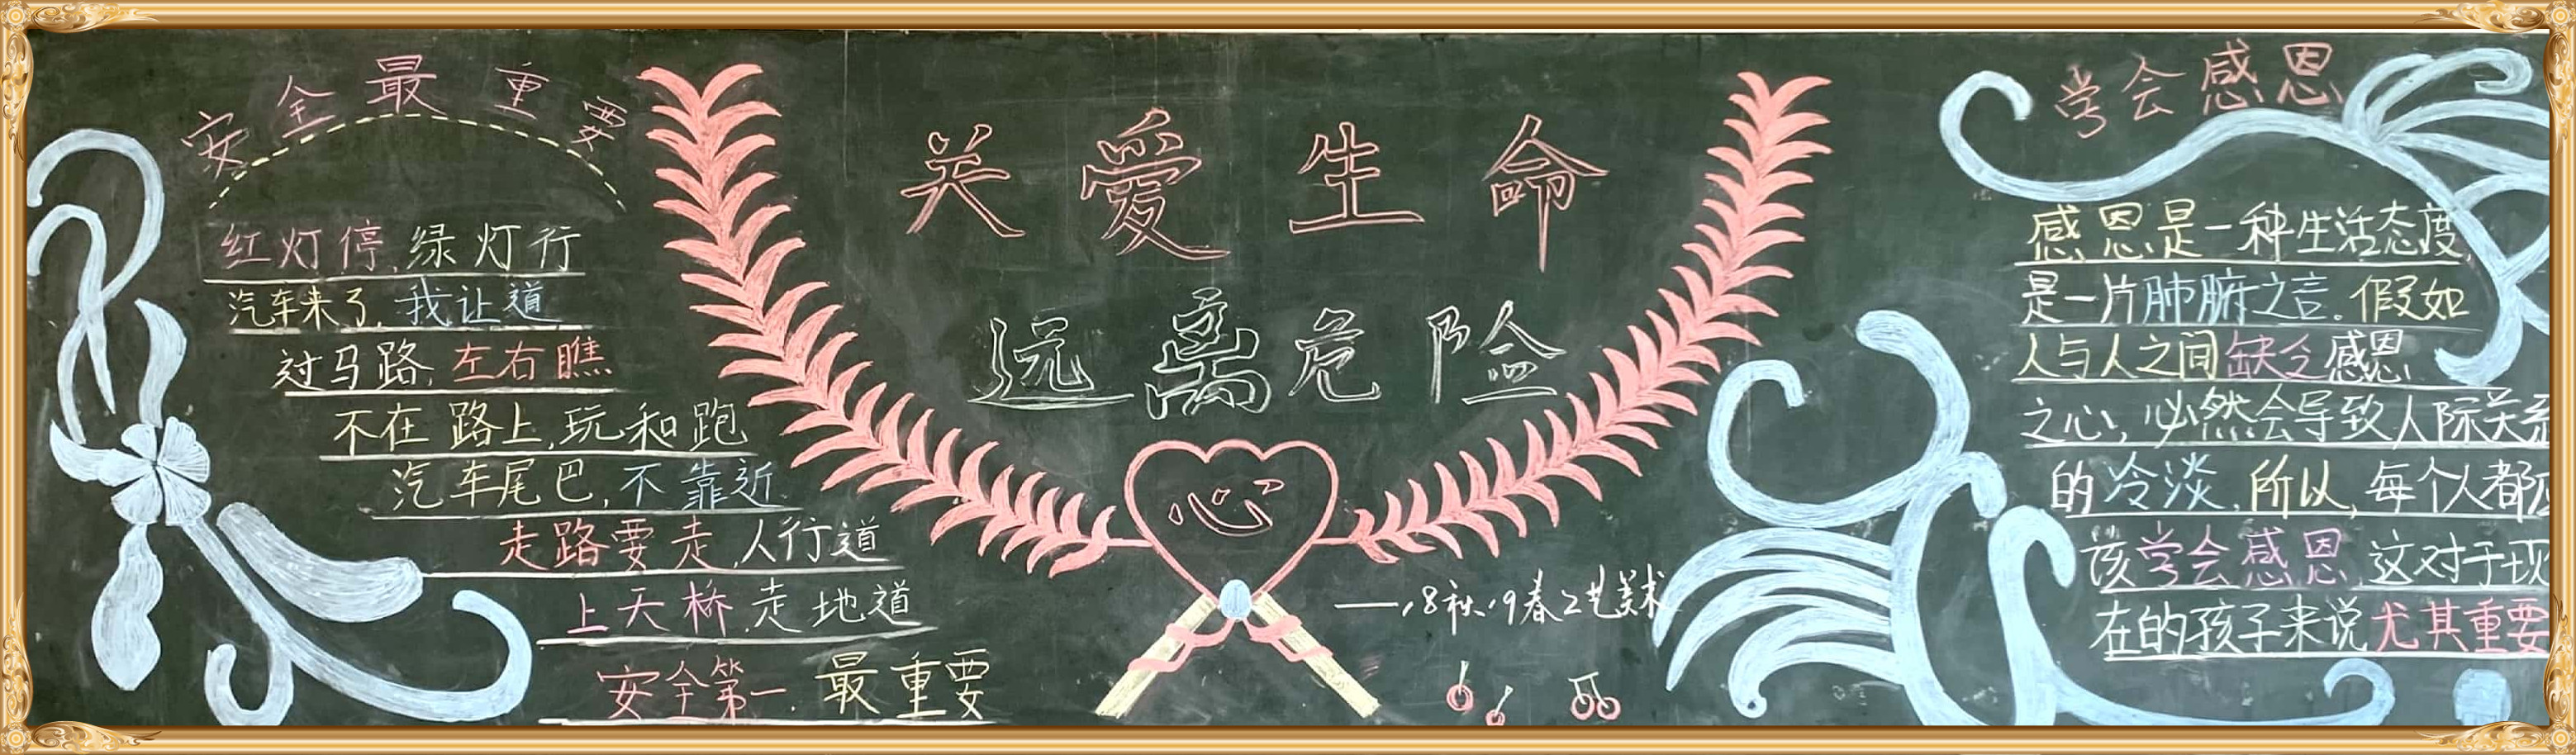 安全最重要
红灯停,绿灯行
汽车来了,我让道
过马路,左右瞧
不在路上,玩和跑
汽车尾巴,不靠近
走路要走,人行道
上天桥,走地道
安全第一,最重要
关爱生命
远离危险
心
——18秋19春工艺美术
学会感恩
感恩是一种生活态度,
是一片肺腑之言。假如
人与人之间缺乏感恩
之心,必然会导致人际关系
的冷淡,所以,每个人都应
该学会感恩,这对于现
在的孩子来说尤其重要